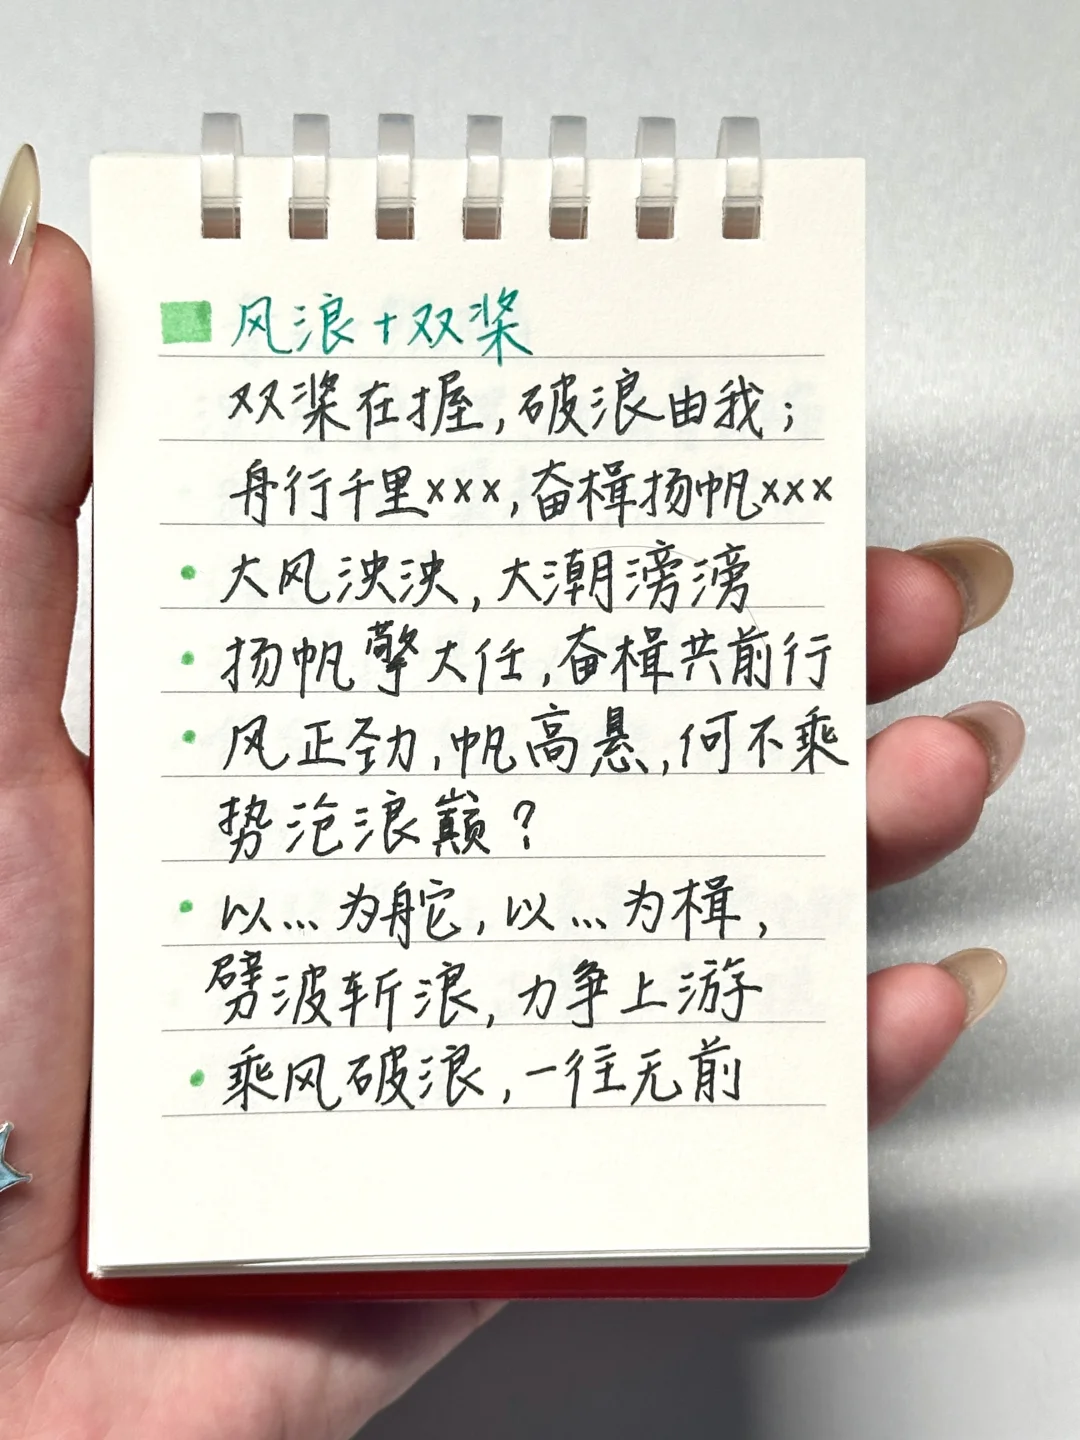 风浪+双桨
双桨在握,破浪由我;
舟行千里×××,奋楫扬帆×××
大风泱泱,大潮滂滂
扬帆擎大任,奋楫共前行
风正劲,帆高悬,何不乘
势沧浪巅?
以…为舵,以…为楫,
劈波斩浪,力争上游
乘风破浪,一往无前